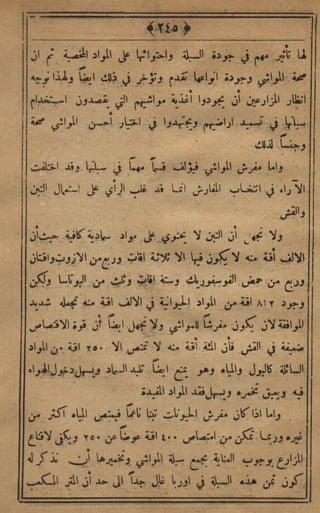 ﴿ ٢٤٥ ﴾
لها تأثير مهم في جودة السبلة واحتوائها على المواد المخصبة ثم ان
صحة المواشي وجودة انواعها تقدم وتؤخر في ذلك ايضاً ولهذا نوجه
انظار المزارعين أن يجودوا أغذية مواشيهم التي يقصدون استخدام
سبلتها في تسميد اراضيهم ويجتهدوا في اختيار أحسن المواشي صحة
وجنساً لذلك
واما مفرش المواشي فيؤلف قسماً مهماً في سبلتها وقد اختلفت
الآراء في انتخاب المفارش انما قد غلب الرأي على استعمال التبن
والقش
ولا نجهل أن التبن لا يحتوي على مواد سمادية كافية حيث أن
الالف أقة منه لا يكون فيها الا ثلاثة اقات وربع من الازوت واقتان
وربع من حمض الفوسفوريك وستة اقات وثلث من البوتاسا ولكن
وجود ٨١٢ اقة من المواد الحيوانية في الالف اقة منه تجعله شديد
الموافقة لان يكون مفرشاً للمواشي ولا نجهل ايضاً أن قوة الامتصاص
ضعيفة في القش فأن المئة أقة منه لا تمتص الا ٢٥٠ اقة من المواد
السائلة كالبول والمياه وهو يمنع ايضاً تلبد السماد ويسهل دخول الهواء
فيه ويعيق تخمره ويسهل فقد المواد المفيدة
واما اذا كان مفرش الحيوانات تبناً ناعماً فيمتص المياه اكثر من
غيره وربما تمكن من امتصاص ٤٠٠ اقة عوضاً عن ٢٥٠ ويكفي لاقناع
المزارع بوجوب العناية بجمع سبلة المواشي وتخميرها أن نذكر له
كون ثمن هذه السبلة في اوربا غال جداً الى حد أن المتر المكعب